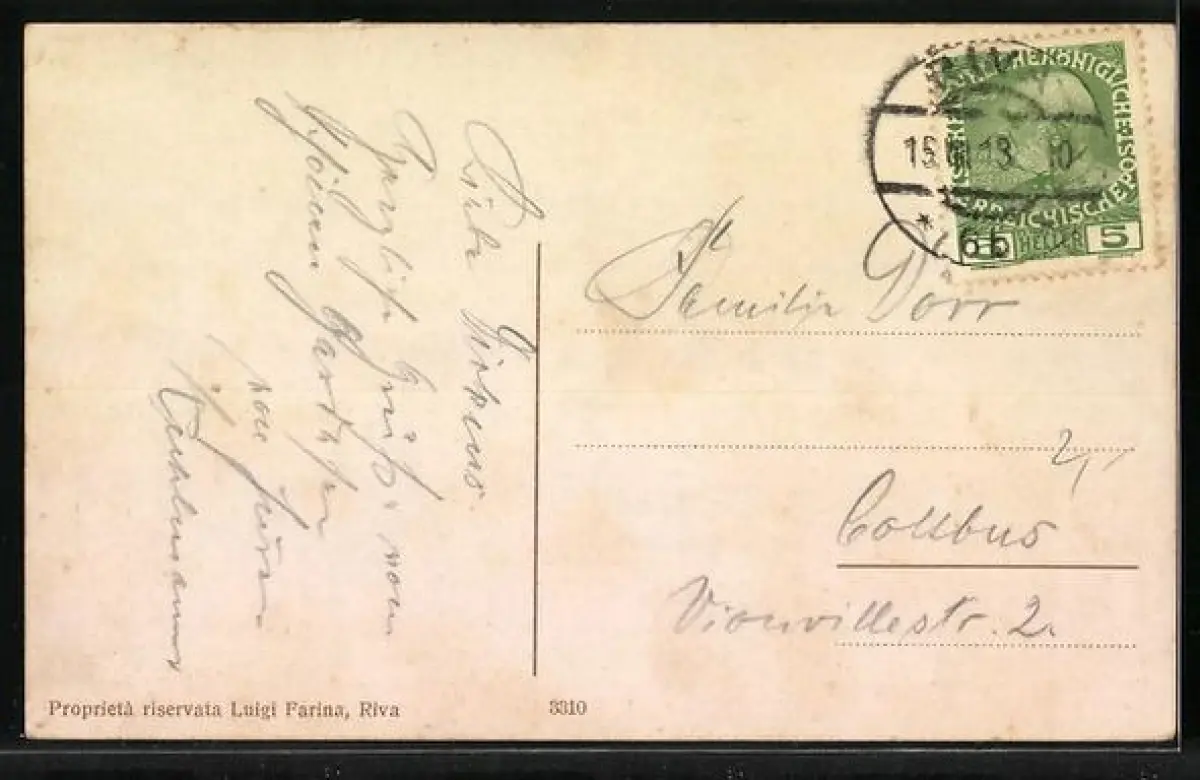 Liebe Dorrens
Herzliche Grüße vom
schönen Gardasee
von Ihren
Kuhlmanns
Familie Dorr
Cottbus
Vionvillestr. 2.
2,-
KAISERLICHE KÖNIGLICHE ÖSTERREICHISCHE POST
5 HELLER 5
15. 13 10
* 6b
Proprietà riservata Luigi Farina, Riva
3310